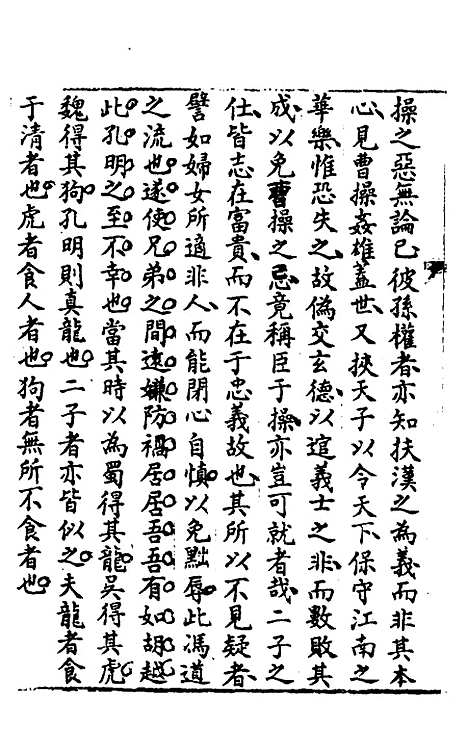 操之惡無論已彼孫權者亦知扶漢之為義而非其本
心見曹操姦雄蓋世又挾天子以令天下保守江南之
華樂惟恐失之故偽交玄德以逭義士之非而數敗其
成以免曹操之忌竟稱臣于操亦豈可就者哉二子之
仕皆志在富貴而不在于忠義故也其所以不見疑者
譬如婦女所適非人而能閉心自慎以免黜辱此馮道
之流也遂使兄弟之間遠嫌防禍居居吾吾有如胡越
此孔明之至不幸也當其時以為蜀得其龍吳得其虎
魏得其狗孔明則真龍也二子者亦皆似之夫龍者食
于清者也虎者食人者也狗者無所不食者也